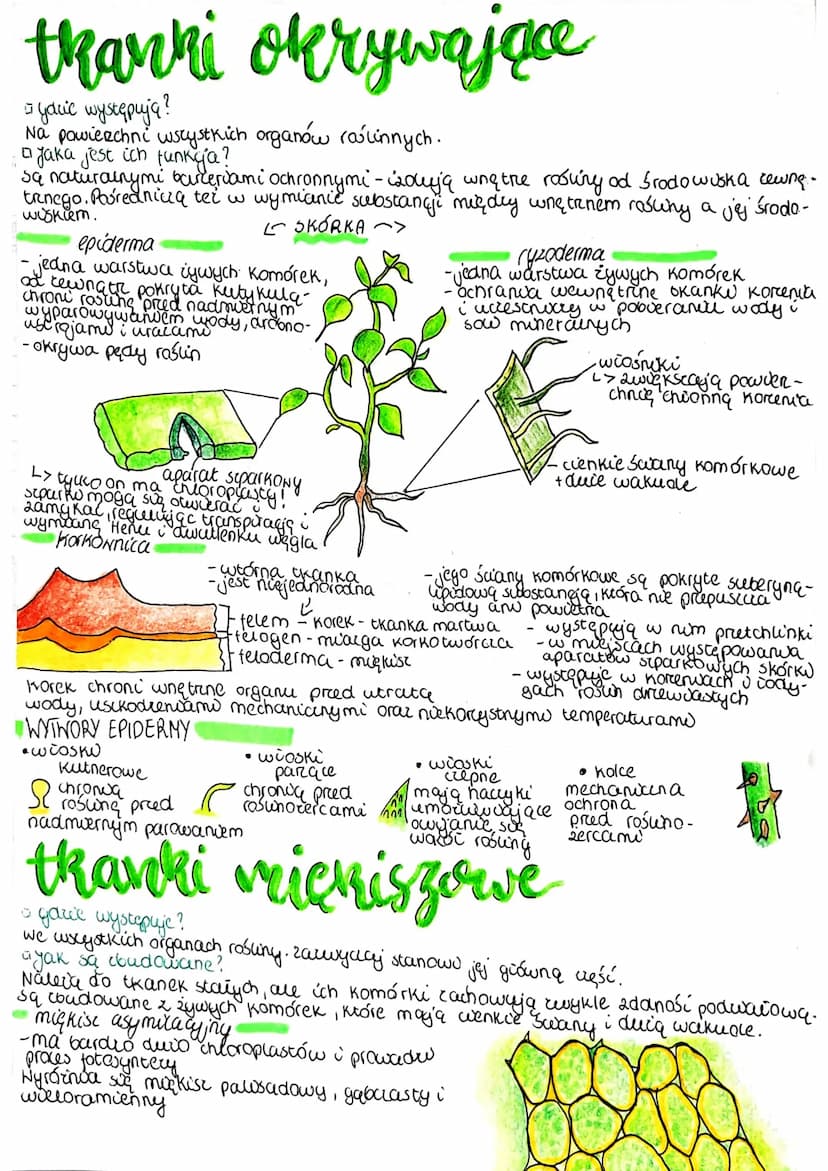 tkanki okrywające
gdzie występują?
Na powierzchni wszystkich organów roślinnych.
Jaka jest ich funkcja?
są naturalnymi barierami ochronnymi - izolują wnętrze rośliny od środowiska zewnę-
trznego. Pośredniczą też w wymianie substancji między wnętrzem rośliny a jej środo-
wiskiem.
SKÓRKA
epiderma
- jedna warstwa żywych komórek,
od zewnątrz pokryta kutykulą-
chroni roślinę przed nadmiernym
wyparowywaniem wody, drobno-
ustrojami i urazami
- okrywa pędy roślin
ryzoderma
- jedna warstwa żywych komórek
- ochrania wewnętrzne tkanki korzenia
i uczestniczy w pobieraniu wody i
soli mineralnych
włośniki
↳ zwiększają powierz-
chnię chłonną korzenia
- cienkie ściany komórkowe
+ duże wakuole
aparat szparkowy
↳ tylko on ma chloroplasty!
szparki mogą się otwierać i
zamykać, regulując transpirację i
wymianę tlenu i dwutlenku węgla
korkownica
- wtórna tkanka
- jest niejednorodna
felem - korek - tkanka martwa
felogen - miazga korkotwórcza
feloderma - miękisz
- jego ściany komórkowe są pokryte suberyną-
lipidową substancją, która nie przepuszcza
wody ani powietrza
- występują w nim przetchlinki
- w miejscach występowania
aparatów szparkowych skórki
- występuje w korzeniach i łody-
gach roślin drzewiastych
Korek chroni wnętrze organu przed utratą
wody, uszkodzeniami mechanicznymi oraz niekorzystnymi temperaturami
WYTWORY EPIDERMY
• włoski
kutnerowe
chronią
roślinę przed
nadmiernym parowaniem
• włoski
parzące
chronią przed
roślinożercami
• włoski
czepne
mają haczyki
umożliwiające
owijanie się
wokół rośliny
• kolce
mechaniczna
ochrona
przed roślino-
żercami
tkanki miękiszowe
gdzie występuje?
We wszystkich organach rośliny. zazwyczaj stanowi jej główną część.
Jak są zbudowane?
Należą do tkanek stałych, ale ich komórki zachowują zwykle zdolność podziałową.
są zbudowane z żywych komórek, które mają cienkie ściany i dużą wakuole.
miękisz asymilacyjny
- ma bardzo dużo chloroplastów i prowadzi
proces fotosyntezy
Wyróżnia się miękisz palisadowy, gąbczasty i
wieloramienny